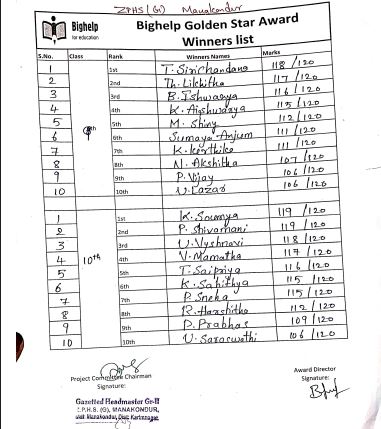 ZPHS (G) Manakondur
Bighelp
for education
Bighelp Golden Star Award
Winners list
S.No. Class Rank Winners Names Marks
1 1st T. SiriChandana 118/120
2 2nd Th. Likhitha 117/120
3 3rd B. Ishwarya 116/120
4 4th K. Aishwarya 115/120
5 5th M. Shiny 112/120
6 9th 6th Sumaya Anjum 111/120
7 7th K. Keerthika 111/120
8 8th N. Akshitha 107/120
9 9th P. Vijay 106/120
10 10th U. Lazar 106/120
1 1st K. Soumya 119/120
2 2nd P. Shivarani 119/120
3 3rd U. Vyshnavi 118/120
4 10th 4th V. Mamatha 117/120
5 5th T. Saipriya 116/120
6 6th K. Sahithya 115/120
7 7th P. Sneha 115/120
8 8th R. Harshitha 112/120
9 9th P. Prabhas 109/120
10 10th U. Saraswathi 106/120
Project Committee Chairman
Signature:
Award Director
Signature:
Gazetted Headmaster Gr-II
Z.P.H.S. (G), MANAKONDUR,
Manakondur, Dist: Karimnagar.